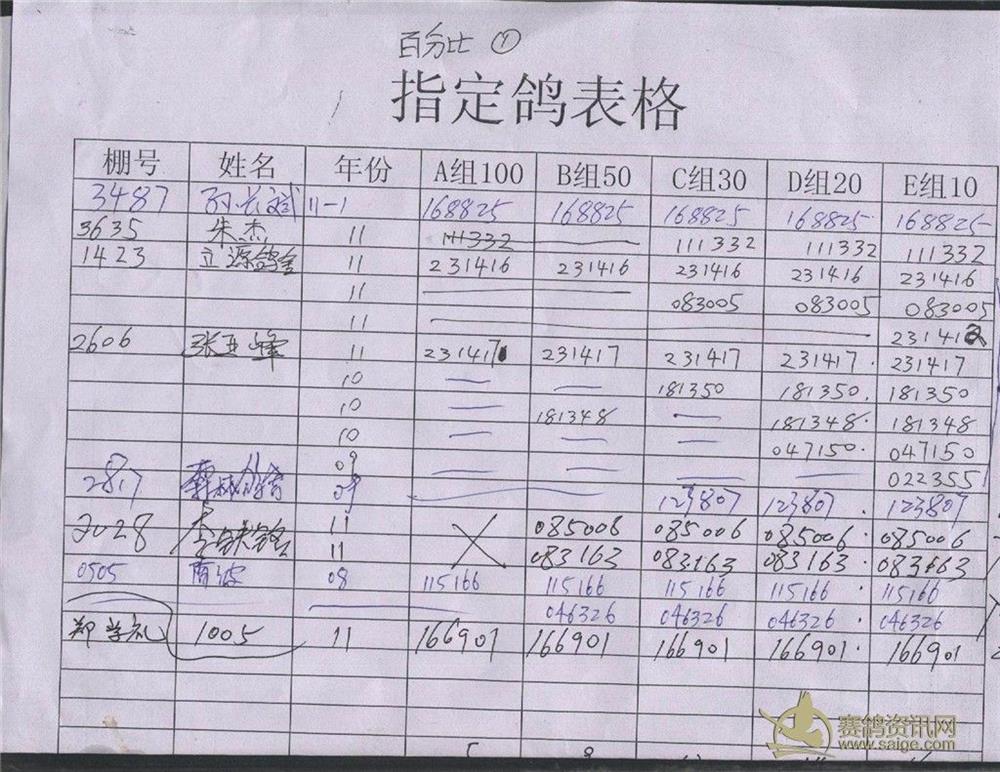 百分比 ①
指定鸽表格
棚号 姓名 年份 A组100 B组50 C组30 D组20 E组10
3487 孙长斌 11-1 168825 168825 168825 168825 168825
3635 朱杰 11 111332 — 111332 111332 111332
1423 立源鸽舍 11 231416 231416 231416 231416 231416
11 — — 083005 083005 083005
11 — — — — 231412
2606 张亚峰 11 231417 231417 231417 231417 231417
10 — — 181350 181350 181350
10 — 181348 — 181348 181348
10 — — — 047150 047150
09 — — — — 022355
2817 09 — — 123807 123807 123807
2028 李铁铭 11 × 085006 085006 085006 085006
11 083163 083163 083163 083163
0505 08 115166 115166 115166 115166 115166
— — — 046326 046326 046326 046326
郑学礼 1005 11 166901 166901 166901 166901 166901
赛鸽资讯网
www.saige.com